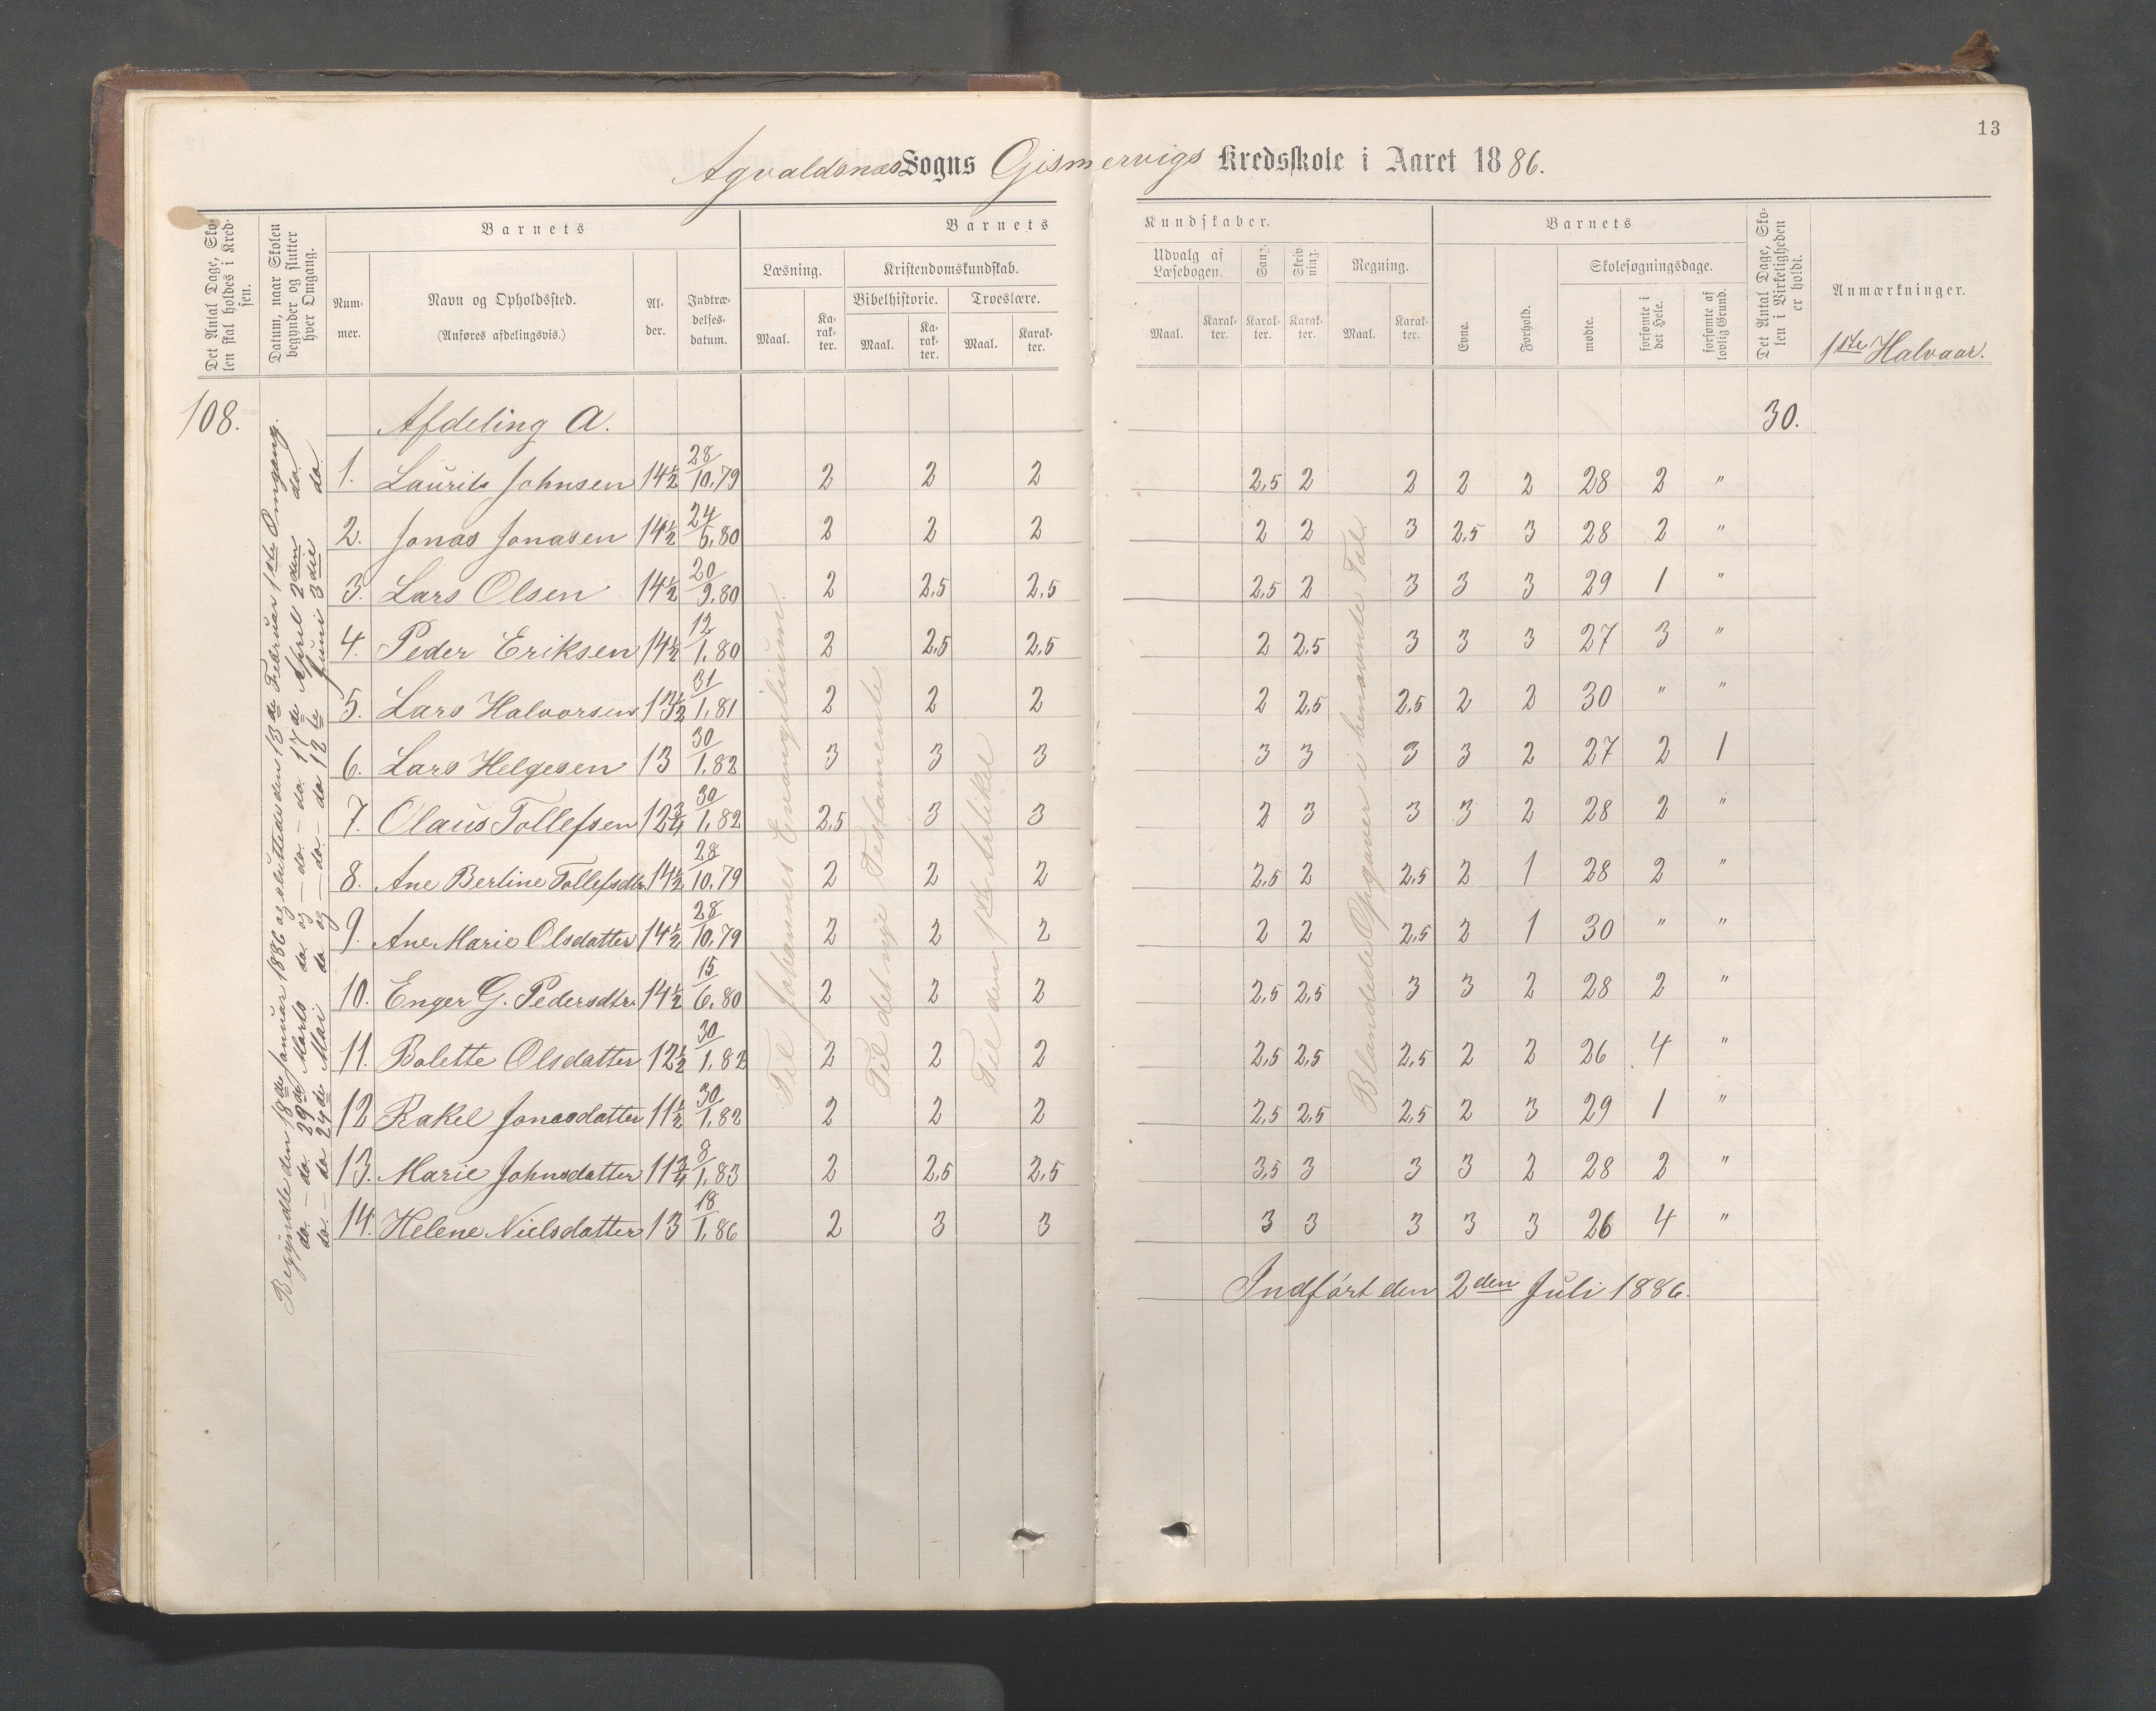 13
Agvaldsnæs Sogns Gismervigs Kredsskole i Aaret 1886.
Det Antal Dage, Skolen skal holdes i Kredsen.
Datum, naar Skolen begynder og slutter hver Omgang.
Barnets
Barnets
Kundskaber.
Barnets
Det Antal Dage, Skolen i Virkeligheden er holdt.
Anmærkninger.
Nummer.
Navn og Opholdssted.
(Anføres afdelingsvis.)
Alder.
Indtrædelsesdatum.
Læsning.
Kristendomskundskab.
Udvalg af Læsebogen.
Sang.
Skrivning.
Regning.
Evne.
Forhold.
Skolesøgningsdage.
Bibelhistorie.
Troeslære.
Maal.
Karakter.
Maal.
Karakter.
Maal.
Karakter.
Maal.
Karakter.
Karakter.
Karakter.
Maal.
Karakter.
mødte.
forsømte i det Hele.
forsømte af lovlig Grund.
1ste Halvaar.
108. Afdeling A. 30.
1. Laurits Johnsen 14½ 28/10.79 2 2 2 2,5 2 2 2 2 28 2 "
2. Jonas Jonasen 14½ 24/6.80 2 2 2 2 2 3 2,5 3 28 2 "
3. Lars Olsen 14½ 20/9.80 2 2,5 2,5 2,5 2 3 3 3 29 1 "
4. Peder Eriksen 14½ 12/1.80 2 2,5 2,5 2 2,5 3 3 3 27 3 "
5. Lars Halvorsen 13½ 31/1.81 2 2 2 2 2,5 2,5 2 2 30 " "
6. Lars Helgesen 13 30/1.82 3 3 3 3 3 3 3 2 27 2 1
7. Olaus Tollefsen 12¾ 30/1.82 2,5 3 3 2 3 3 3 2 28 2 "
8. Ane Berline Tollefsdtr. 14½ 28/10.79 2 2 2 2,5 2 2,5 2 1 28 2 "
9. Ane Marie Olsdatter 14½ 28/10.79 2 2 2 2 2 2,5 2 1 30 " "
10. Enger G. Pedersdtr. 14½ 15/6.80 2 2 2 2,5 2,5 3 3 2 28 2 "
11. Bolette Olsdatter 12½ 30/1.82 2 2 2 2,5 2,5 2,5 2 2 26 4 "
12 Rakel Jonasdatter 11½ 30/1.82 2 2 2 2,5 2,5 2,5 2 3 29 1 "
13. Marie Johnsdatter 11¾ 8/1.83 2 2,5 2,5 3,5 3 3 3 2 28 2 "
14. Helene Nielsdatter 13 18/1.86 2 3 3 3 3 3 3 3 26 4 "
Begyndte den 18de Januar 1886 og sluttede den 13de Februar 1ste Omgang.
do. — do. 29de Marts do. og — do. — do. 17de April 2den do.
do. — do 24de Mai do og — do. — do 12te Juni 3die do.
Til Johannes Evangelium.
Til det nye Testamente
Til den 1ste Artikel
Blandede Opgaver i benævnte Tal.
Indført den 2den Juli 1886.